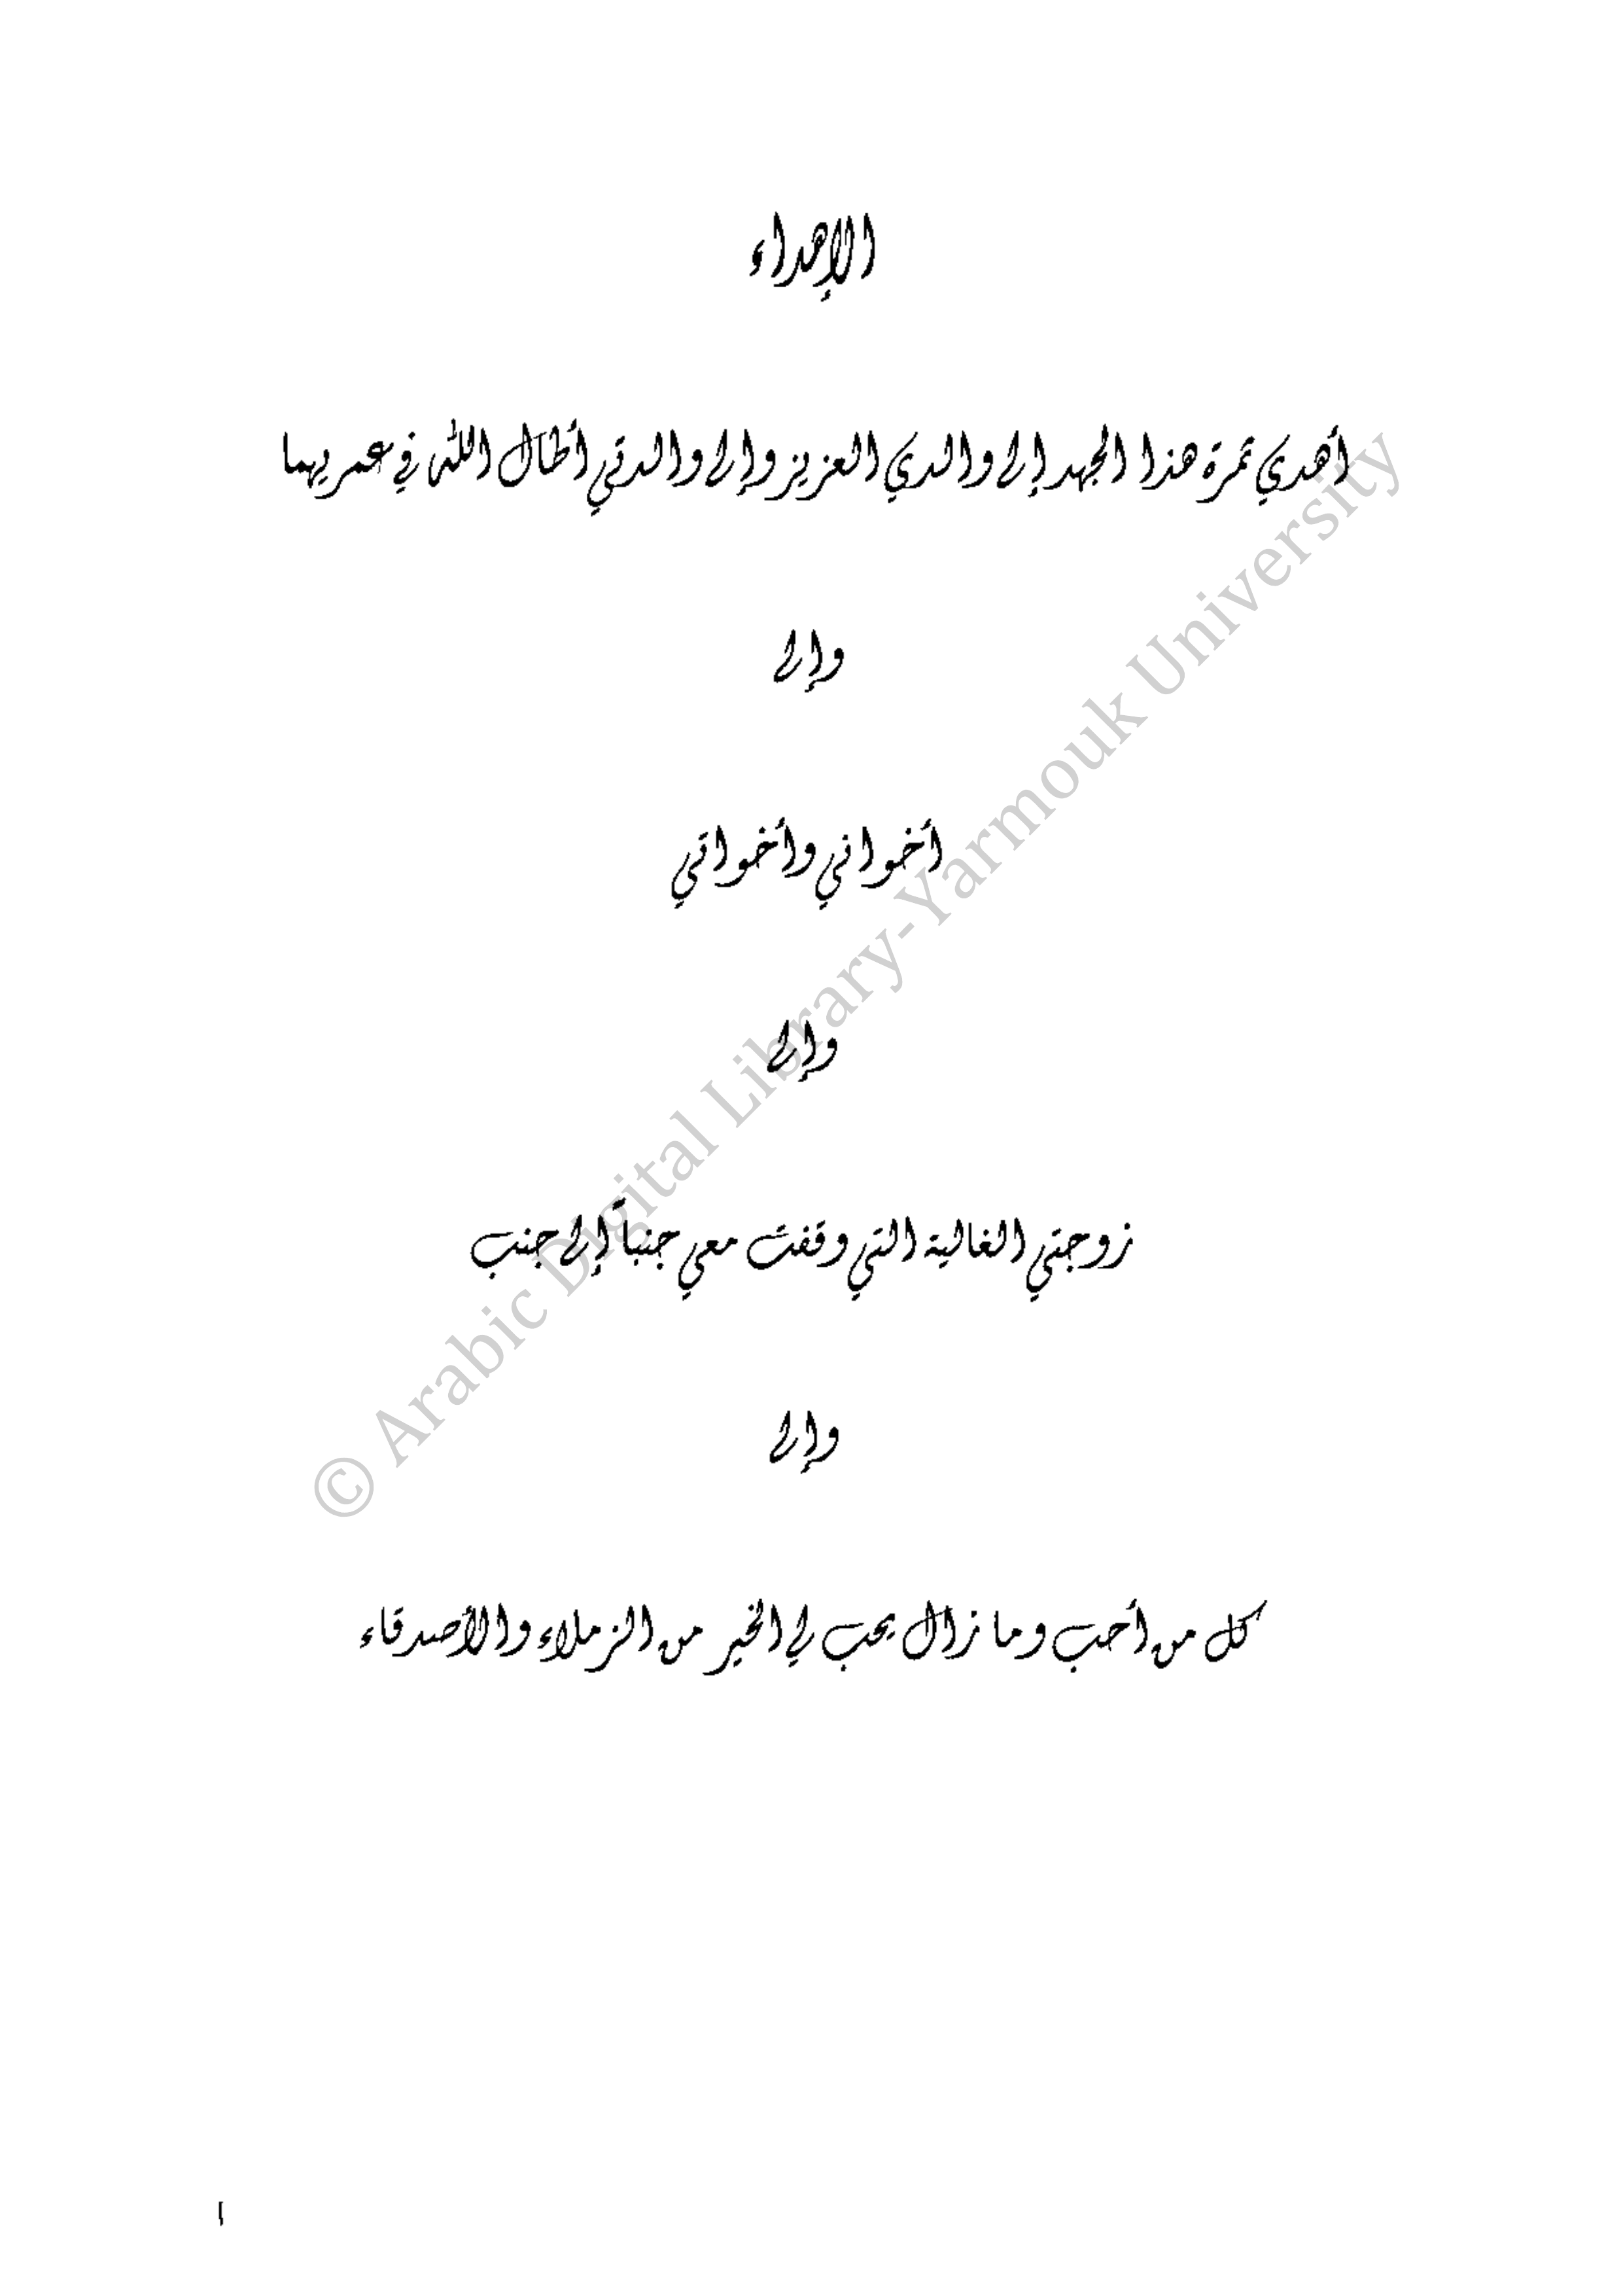 الإهداء
أهدي ثمرة هذا الجهد إلى والدي العزيز وإلى والدتي أطال الله في عمريهما
وإلى
أخواني وأخواتي
وإلى
زوجتي الغالية التي وقفت معي جنباً إلى جنب
وإلى
كل من أحب وما زال يحب لي الخير من الزملاء والأصدقاء
© Arabic Digital Library-Yarmouk University